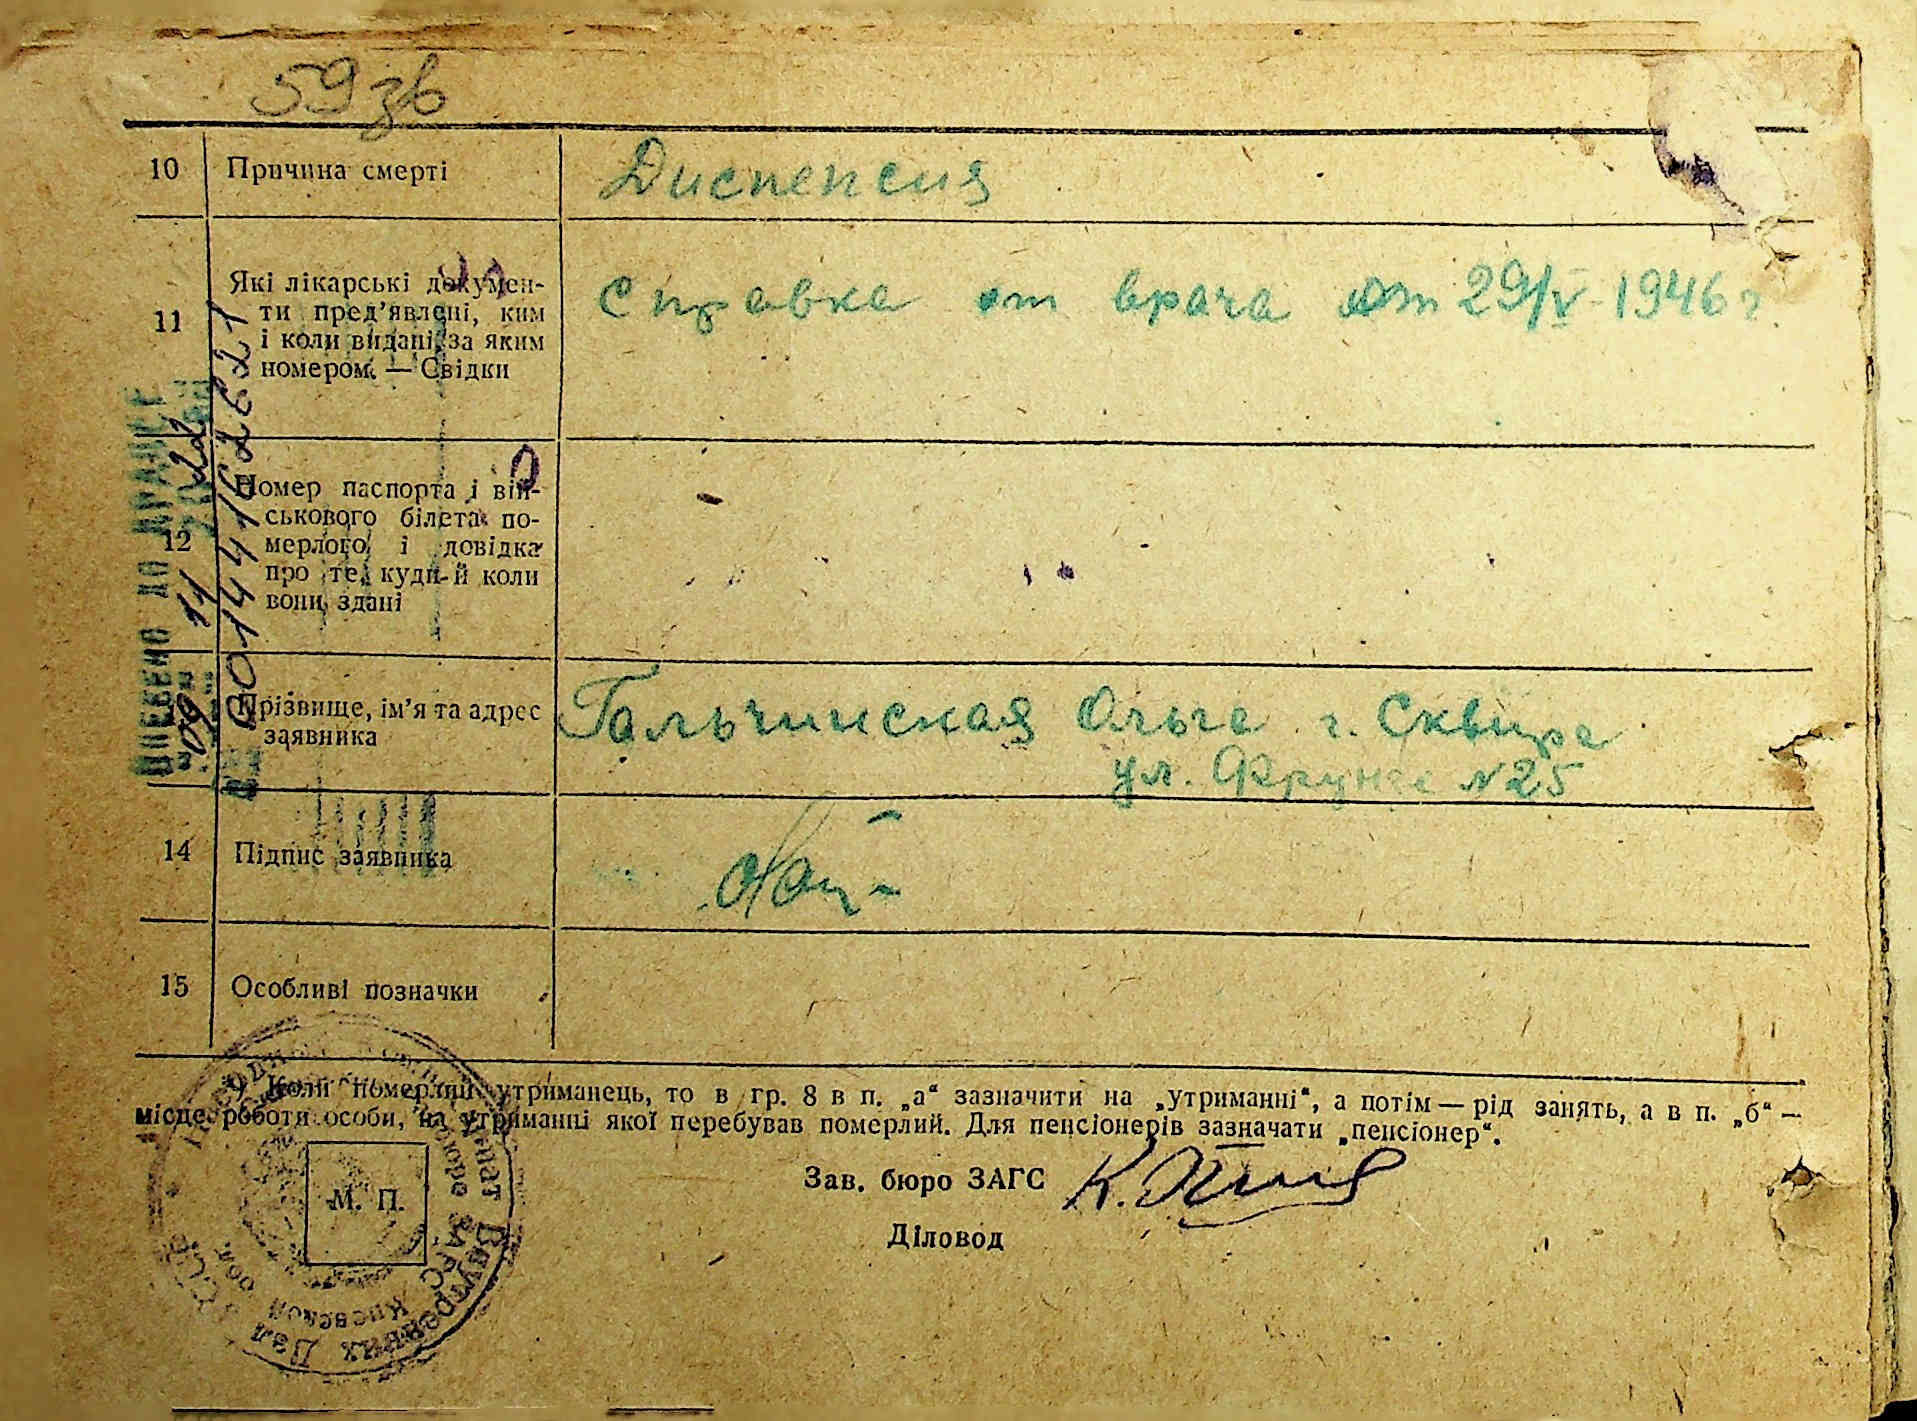 59зв
10 Причина смерті Диспепсия
11 Які лікарські докумен-
ти пред'явлені, ким
і коли видані, за яким
номером. — Свідки
Справка от врача от 29/V-1946 г
12 Номер паспорта і вій-
ськового білета по-
мерлого і довідка
про те, куди й коли
вони здані
Прізвище, ім'я та адрес
заявника
Гальчинская Ольга г. Сквира
ул. Фрунзе № 25
14 Підпис заявника
15 Особливі позначки
*) Коли померлий утриманець, то в гр. 8 в п. „а“ зазначити на „утриманні“, а потім — рід занять, а в п. „б“ —
місце роботи особи, на утриманні якої перебував померлий. Для пенсіонерів зазначати „пенсіонер“.
Зав. бюро ЗАГС
Діловод
М. П.
Внутренних Дел
бюро ЗАГС
Киевской обл.
09 11 22
00144162821